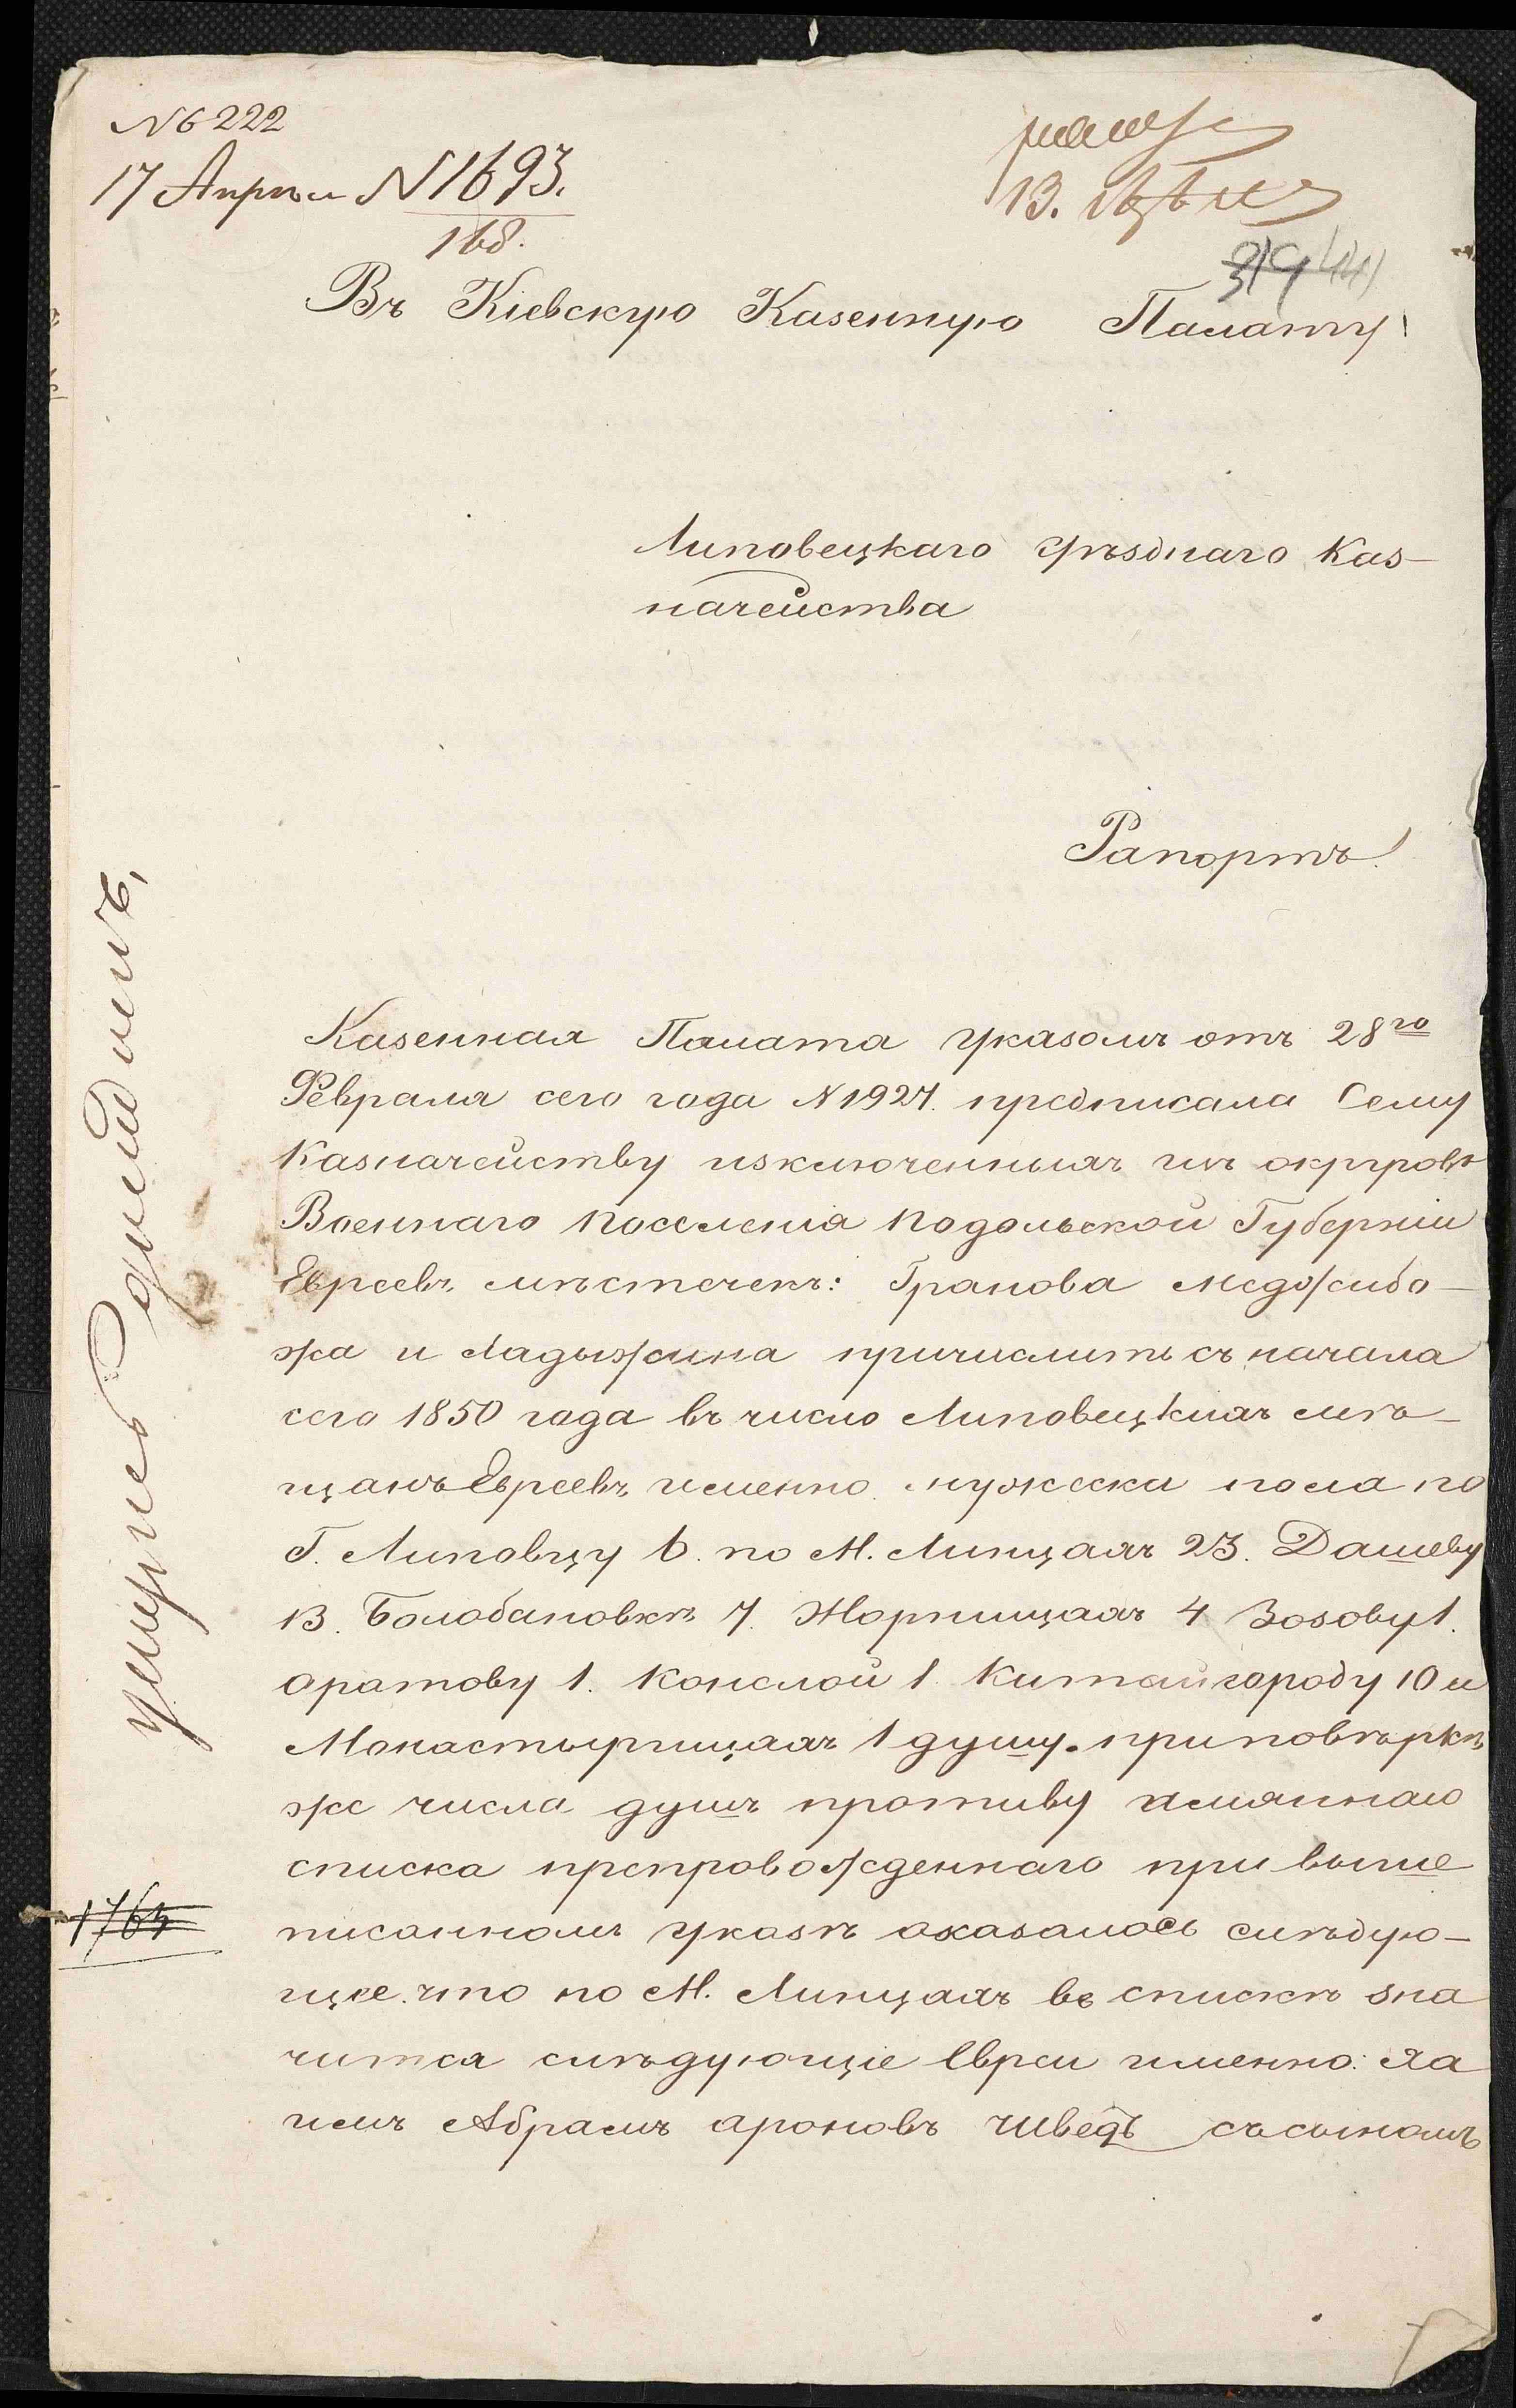 № 6222
17 Апрѣл № 1693.
168.
13.
319
441
Въ Кіевскую Казенную Палату
Липовецкаго Уѣзднаго Каз-
начейства
Рапортъ.
Казенная Палата указомъ отъ 28го
Февраля сего года № 1927. предписала Сему
Казначейству изключенныхъ изъ округовъ
Военнаго поселенія Подольской Губерніи
Евреевъ мѣстечекъ: Гранова Меджибо-
жа и Ладыжина причислить съ начала
сего 1850 года въ число Липовецкихъ мѣ-
щанъ Евреевъ именно мужеска пола по
Г. Липовцу 6. по М. Линцахъ 23. Дашеву
13. Балабановкѣ 7. Жорнищахъ 4 Зозову 1.
Оратову 1. Конелой 1. Китайгороду 10 и
Монастырищахъ 1 душу. при повѣркѣ
же числа душъ противу имяннаго
списка препровожденнаго при выше
писанномъ указѣ оказалось слѣдую-
щее. что по М. Линцахъ въ спискѣ зна
чится слѣдующіе Евреи именно: Ха
имъ Абрамъ Ароновъ Шведъ съ сыномъ
1763